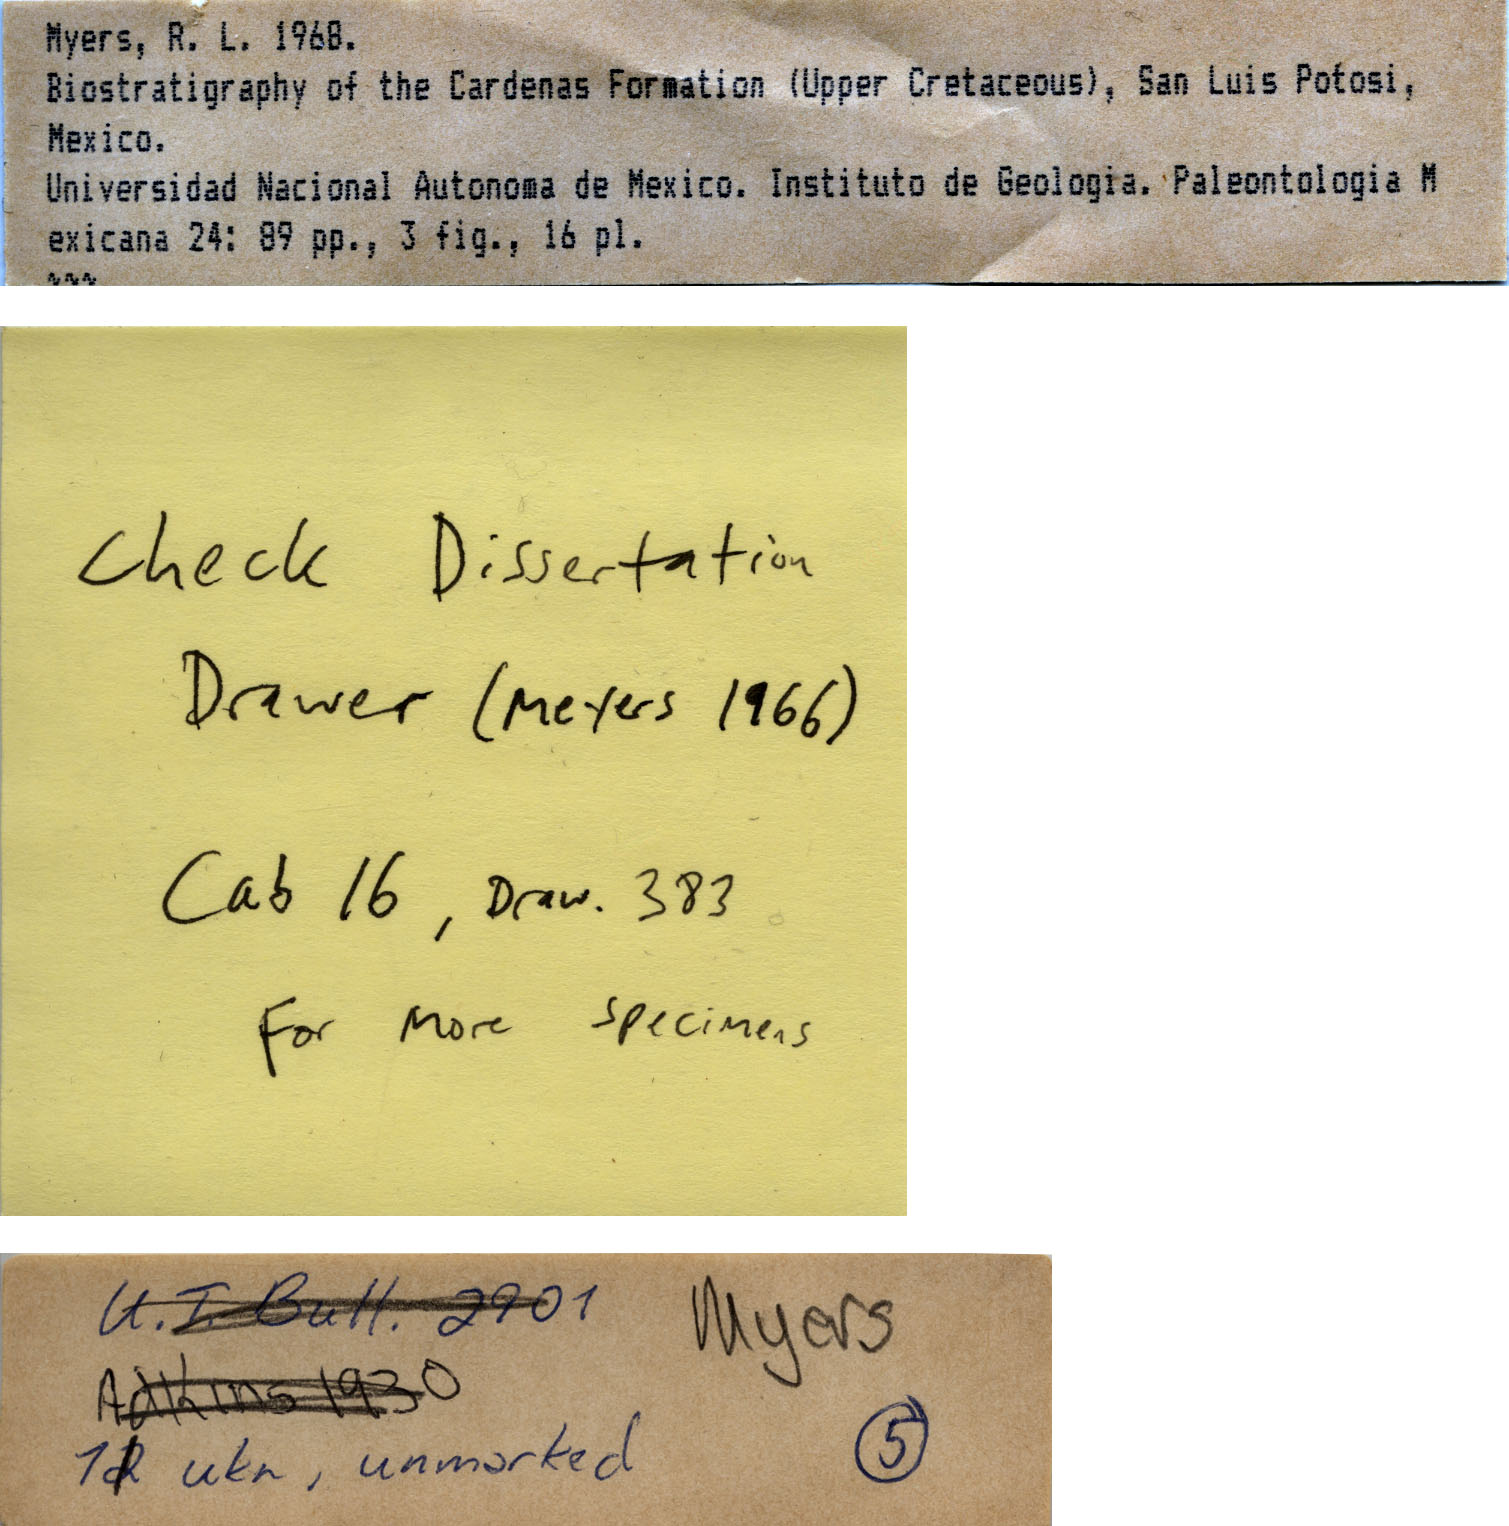 Myers, R. L. 1968.
Biostratigraphy of the Cardenas Formation (Upper Cretaceous), San Luis Potosi,
Mexico.
Universidad Nacional Autonoma de Mexico. Instituto de Geologia. Paleontologia M
exicana 24: 89 pp., 3 fig., 16 pl.
Check Dissertation
Drawer (Meyers 1966)
Cab 16, Draw. 383
For More specimens
U.T. Bull. 2901
Myers
Adkins 1930
ukn, unmarked
5